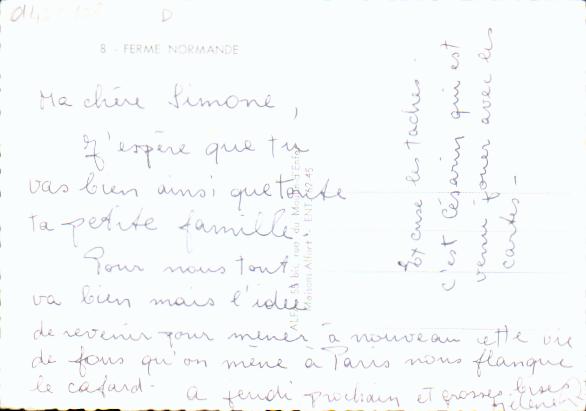 D
8 - FERME NORMANDE
Ma chère Simone,
J'espère que tu
vas bien ainsi que toute
ta petite famille.
Pour nous tout
va bien mais l'idée
de revenir pour mener à nouveau cette vie
de fous qu'on mène à Paris nous flanque
le cafard. A jeudi prochain et grosses bises
Excuse les taches.
c'est Césarin qui est
venu jouer avec les
cartes -
Maisons-Alfort - ENT